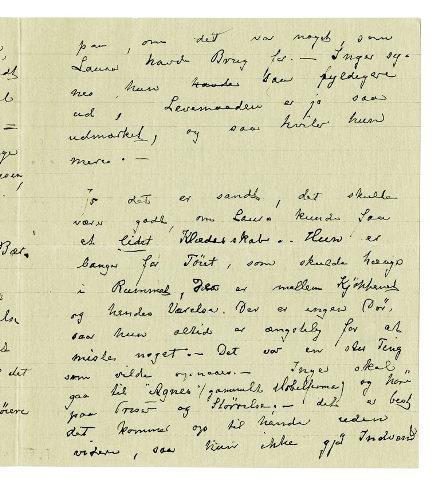 paa, om det var noget, som
Laura havde Brug for. — Inger sy-
nes, hun saa fyldigere
ud, Levemaaden er jo saa
udmærket, og saa hviler hun
mere. —
Jo det er sandt, det skulde
være godt, om Laura kunde faa
et lidet Klædesskab. Hun er
bange for Töiet, som skulde hænge
i Rummet, der er mellem Kjökkenet
og hendes Værelse. Der er ingen Dör,
saa hun altid er ængstelig for at
miste noget. — Det var en stor Ting
som vilde opnaaes. — Inger skal
gaa til "Agnes" (gammelt Möbelfirma) og höre
paa Priser og Störrelse, — det er best
det kommer op til hende uden
videre, saa hun ikke gjör Indvend